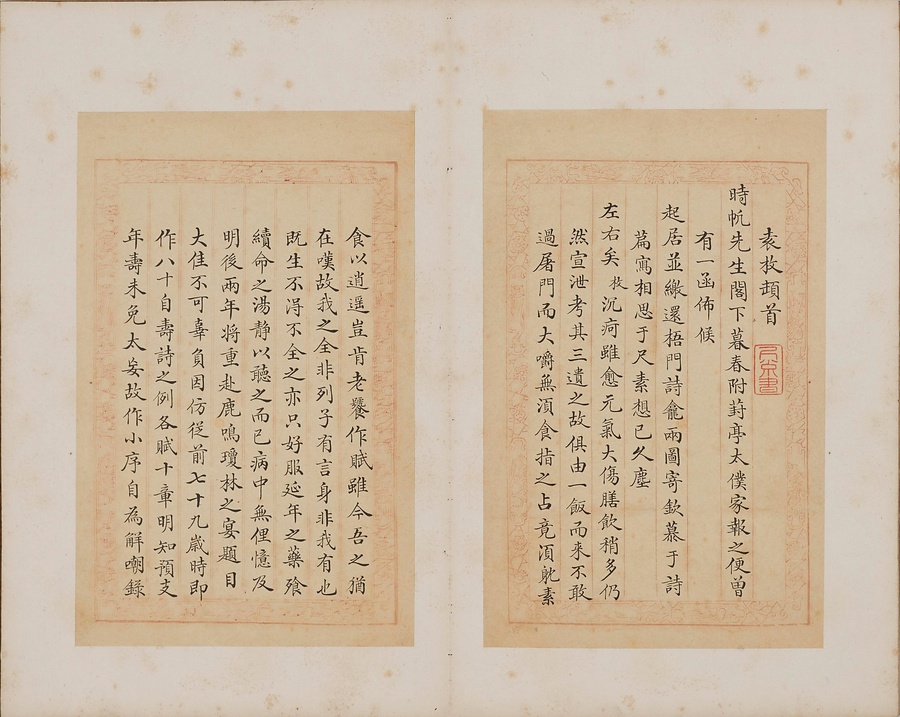 袁枚頓首
時帆先生閣下暮春附葑亭太僕家報之便曾
有一函佈候
起居並繳還梧門詩龕兩圖寄欽慕于詩
篇寫相思于尺素想已久塵
左右矣枚沉疴雖愈元氣大傷膳飲稍多仍
然宣泄考其三遺之故俱由一飯而來不敢
過屠門而大嚼無須食指之占竟須軙素
食以逍遥豈肯老饕作賦雖今吾之猶
在嘆故我之全非列子有言身非我有也
既生不得不全之亦只好服延年之藥飱
續命之湯静以聽之而已病中無俚憶及
明後兩年將重赴鹿鳴瓊林之宴題目
大佳不可辜負因仿從前七十九歲時即
作八十自壽詩之例各賦十章明知預支
年壽未免太妄故作小序自為解嘲錄